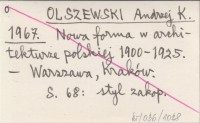 OLSZEWSKI Andrzej K.
1967. Nowa forma w archi-
tekturze polskiej 1900-1925.
- Warszawa, Kraków.
S. 68: styl zakop.